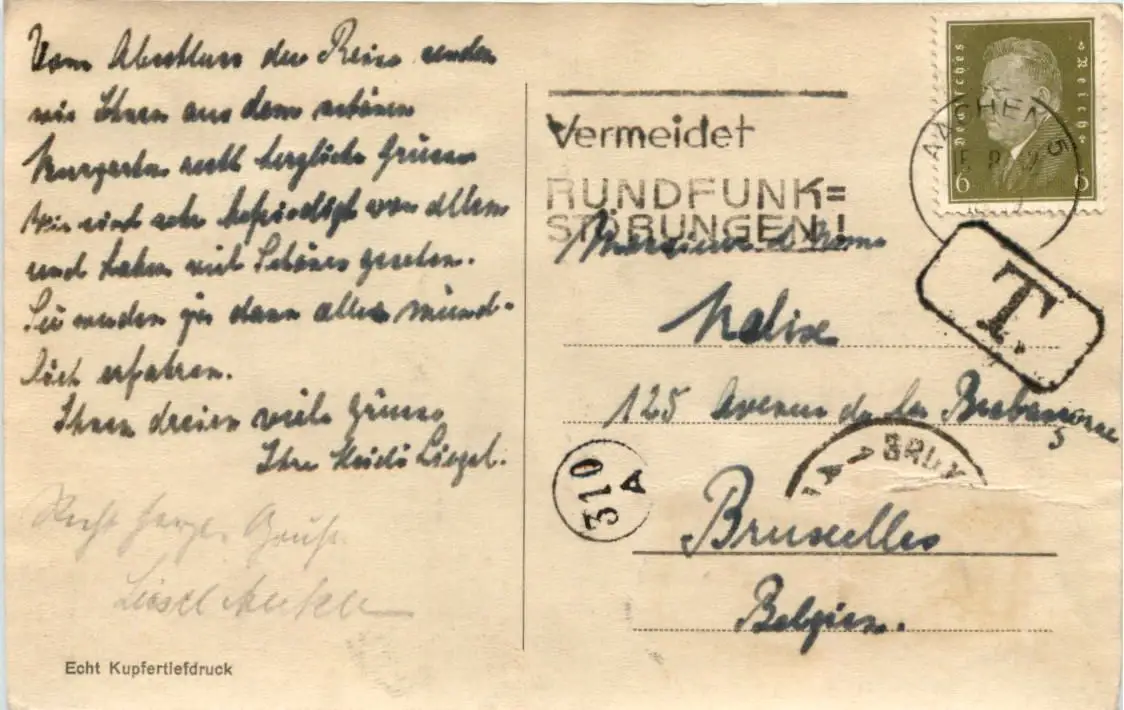 Vom Abschluss der Reise senden
wir Ihnen aus dem schönen
Kurgarten recht herzliche Grüsse
Wir sind sehr befriedigt von allem
und haben viel Schönes gesehen.
Sie werden ja dann alles münd-
lich erfahren.
Ihnen dreien viele Grüsse
Ihre Heidi Liegel.
Recht herzl. Grüße
Liesel
Echt Kupfertiefdruck
Vermeidet
RUNDFUNK=
STÖRUNGEN!
Deutsches Reich
6 6
AACHEN 5
T.
Monsieur
125 Avenue de la Brabançonne
310
A
BRUX
Bruxelles
Belgien.